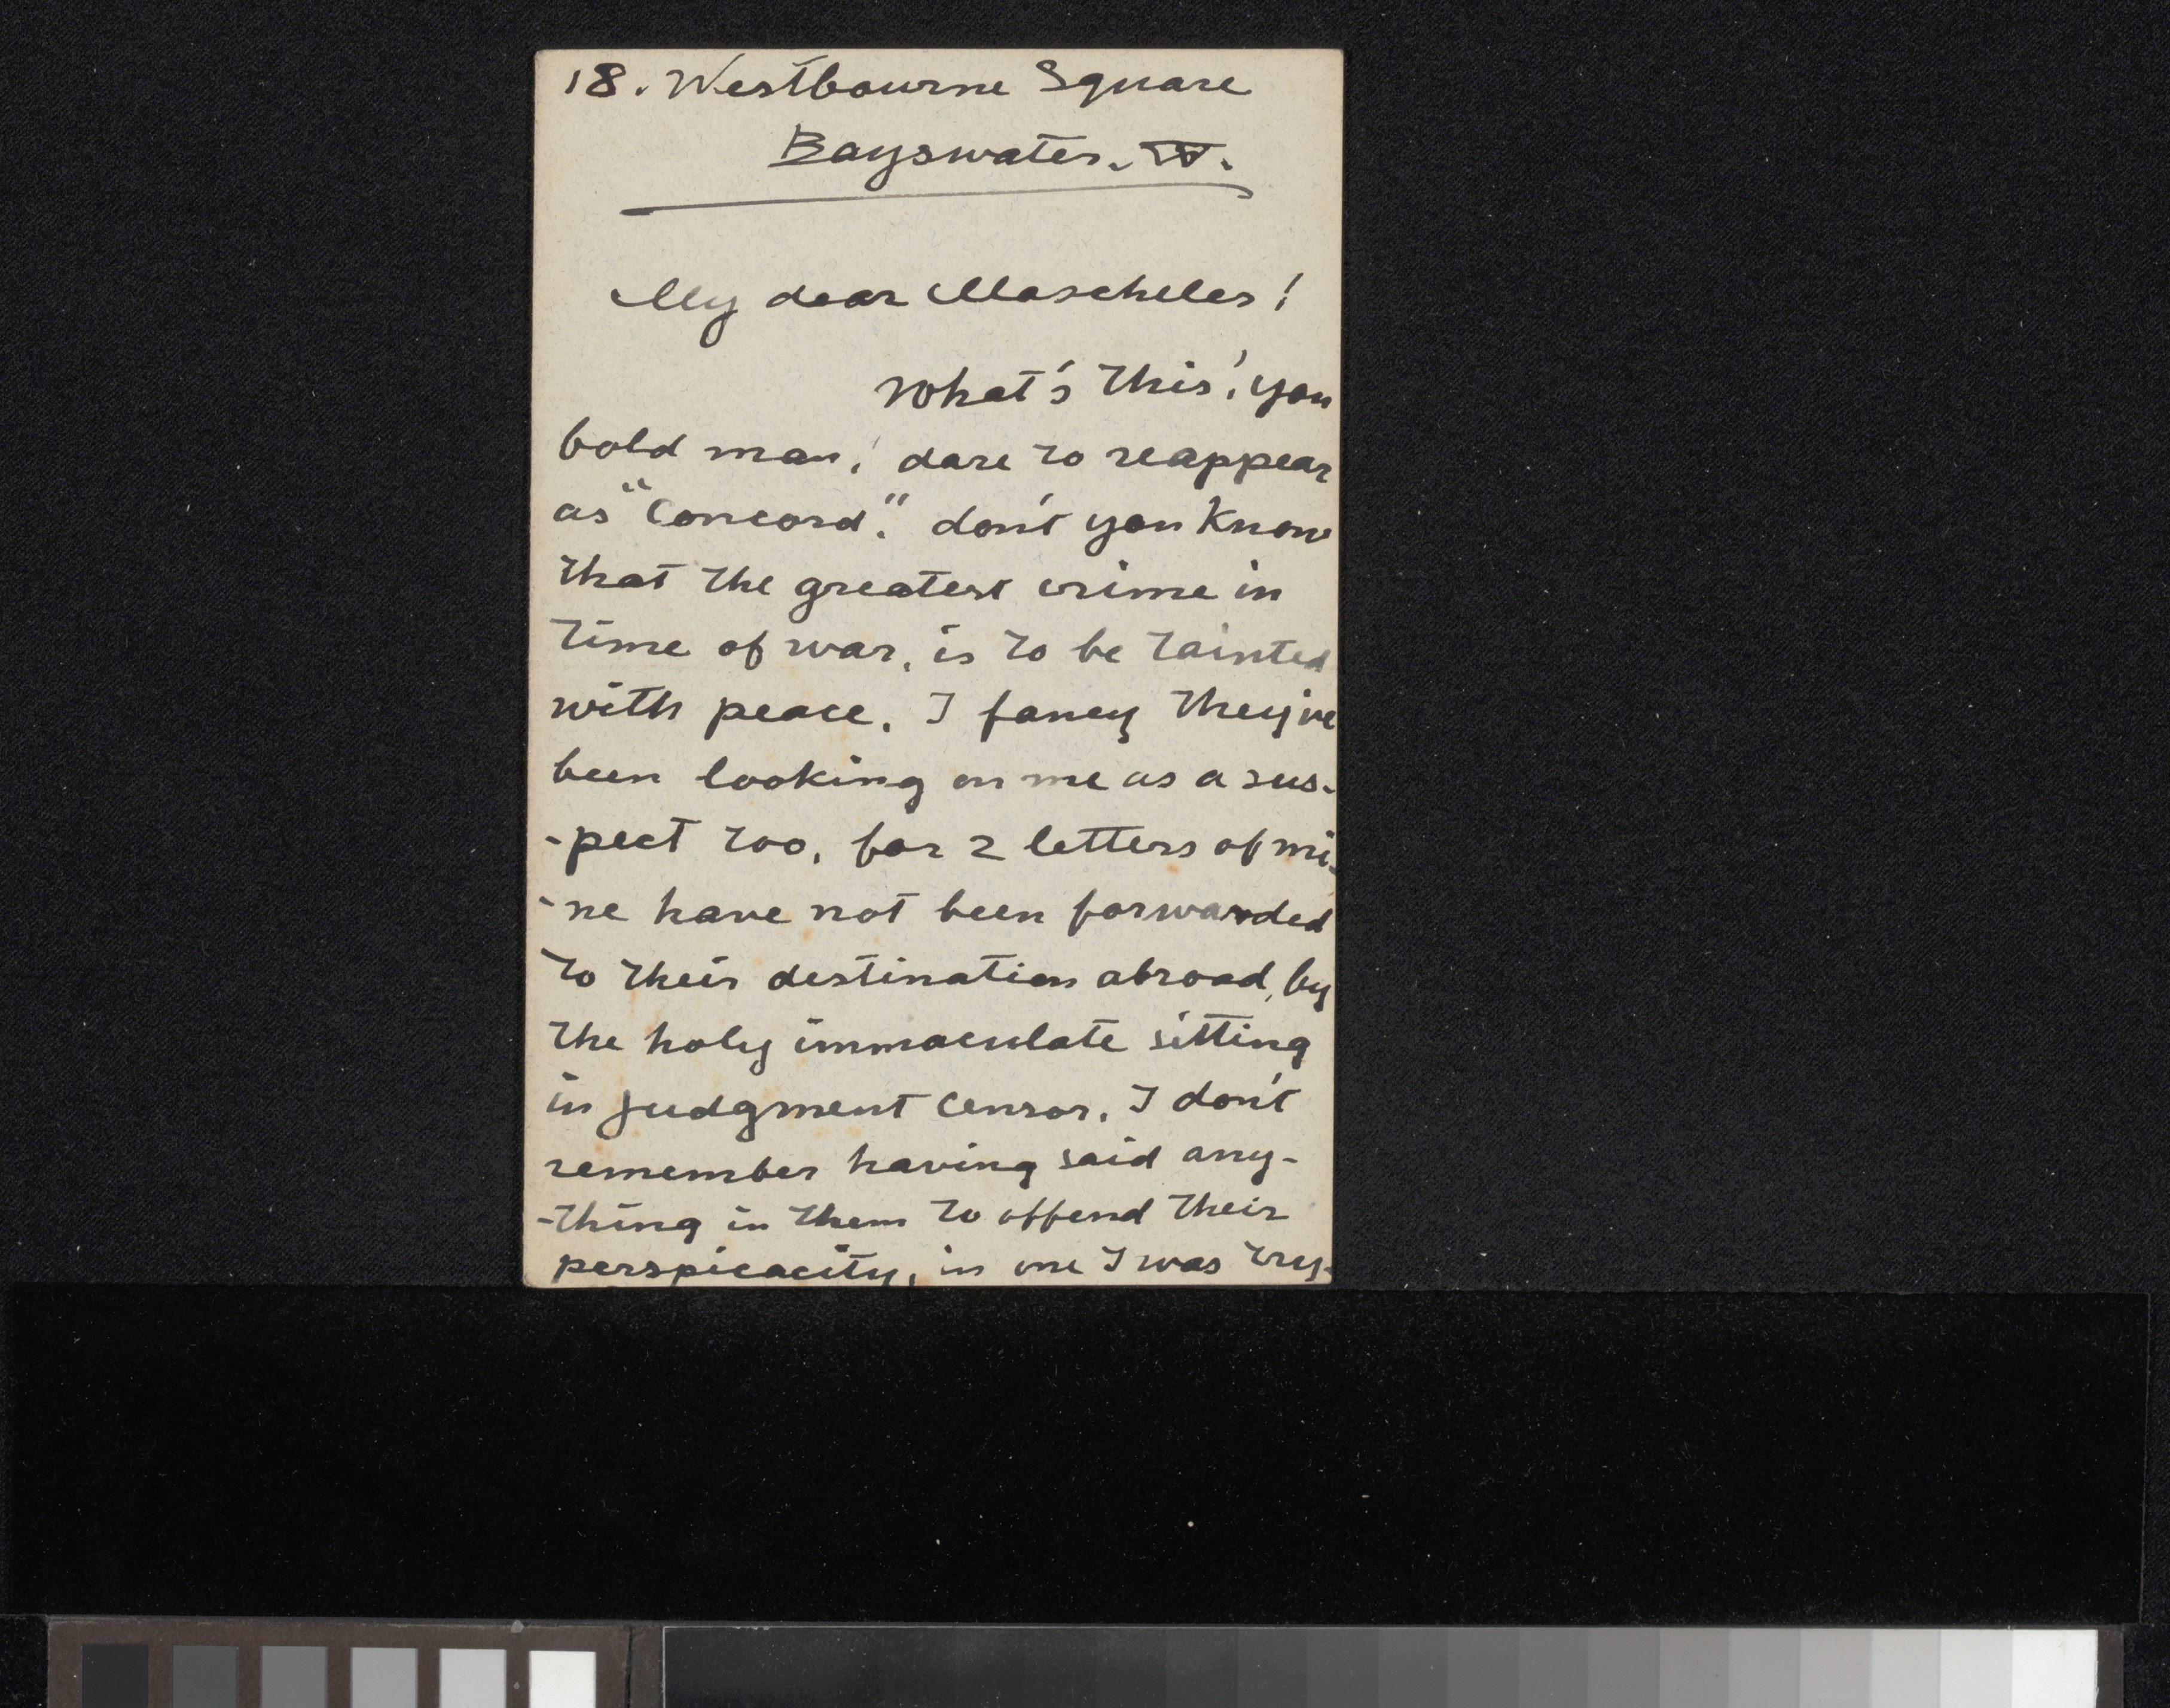 18. Westbourne Square
Bayswater. W.
My dear Moscheles!
What's this! you
bold man! dare to reappear
as "Concord". don't you know
that the greatest crime in
time of war, is to be tainted
with peace. I fancy they've
been looking on me as a sus-
-pect too, for 2 letters of mi-
-ne have not been forwarded
to their destination abroad, by
the holy immaculate sitting
in judgment censor. I don't
remember having said any-
-thing in them to offend their
perspicacity, in one I was try-